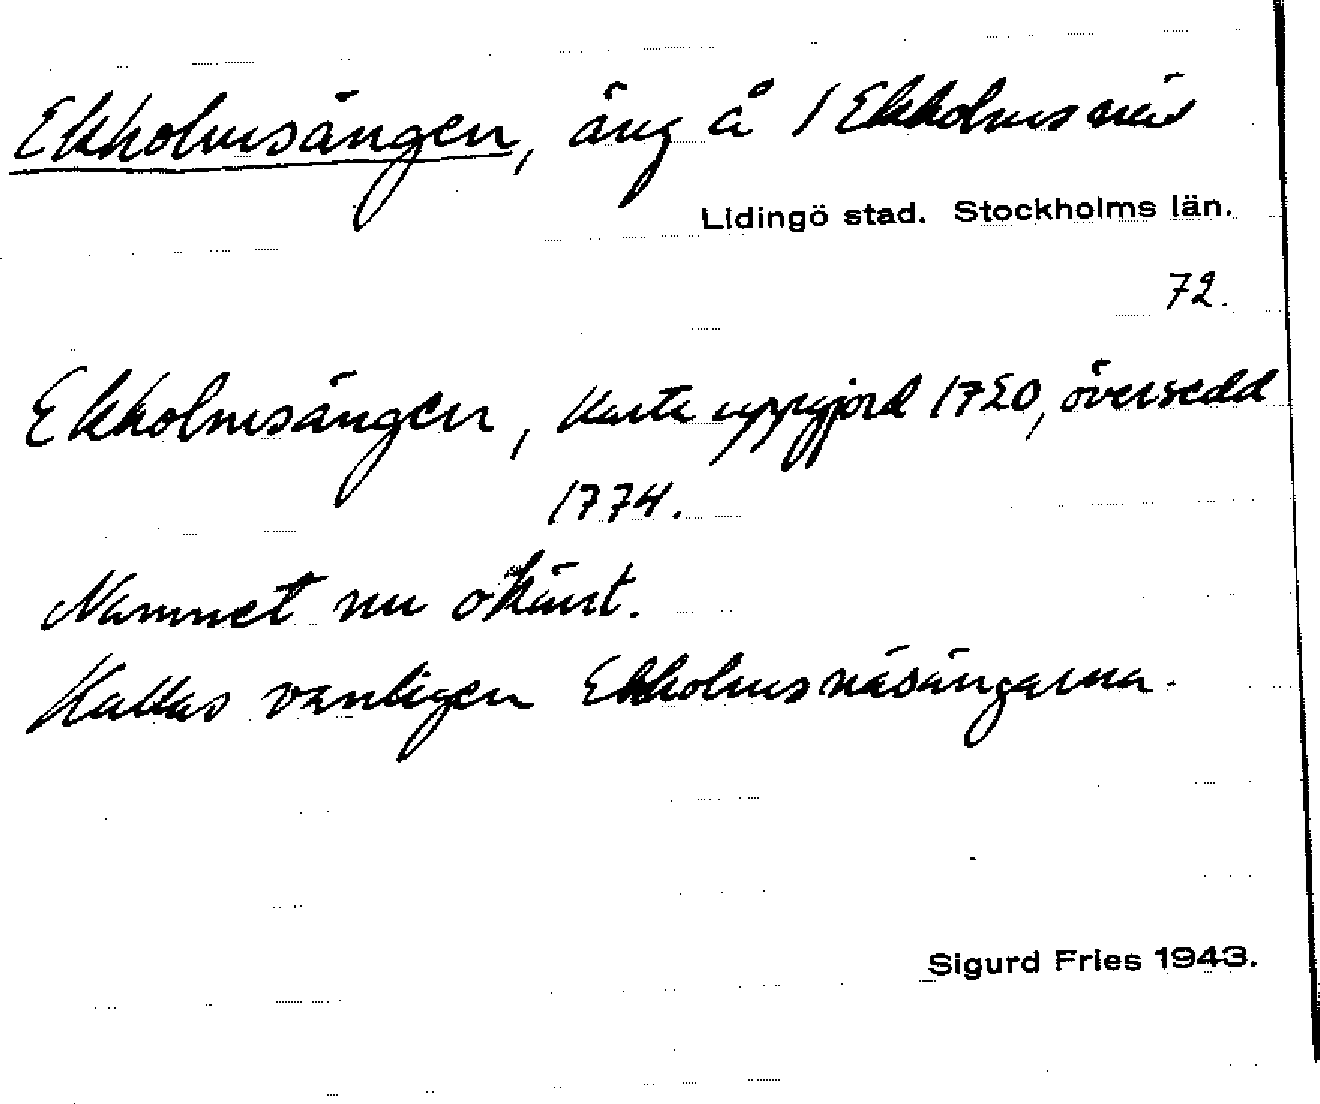 Ekholmsängen, äng å / Ekholmsnäs
Lidingö stad. Stockholms län.
72.
Ekholmsängen, Karta uppgjord 1720, översedd
1774.
Namnet nu okänt.
Kallas vanligen Ekholmsnäsängarna.
Sigurd Fries 1943.